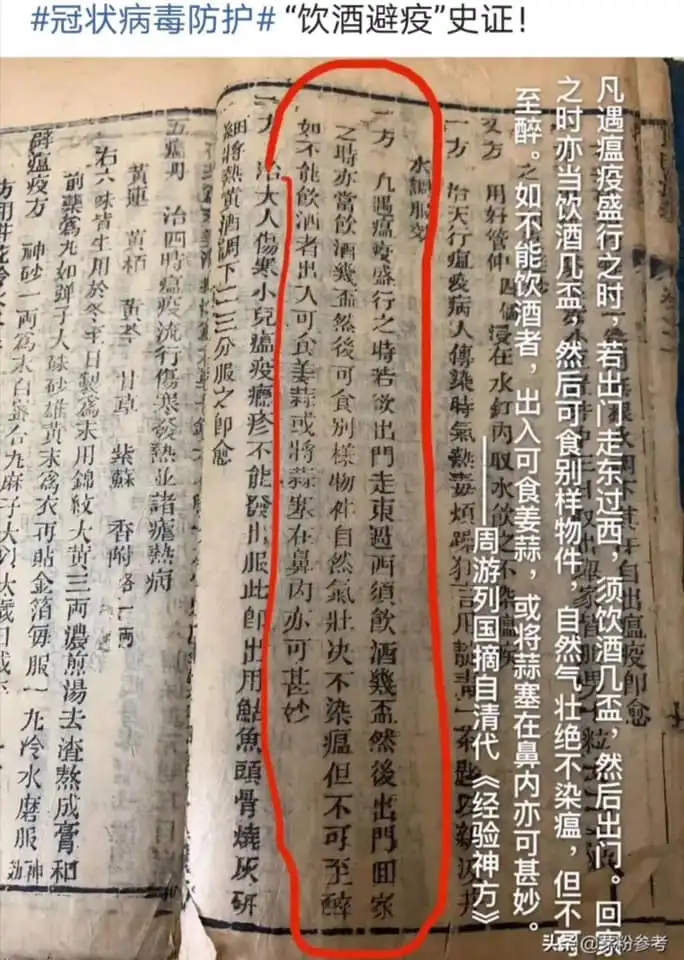 #冠状病毒防护# “饮酒避疫”史证！
凡遇瘟疫盛行之时，若出门走东过西，须饮酒几盃，然后出门。回家
之时亦当饮酒几盃，然后可食别样物件，自然气壮绝不染瘟，但不可
至醉。如不能饮酒者，出入可食姜蒜，或将蒜塞在鼻内亦可甚妙。
——周游列国摘自清代《经验神方》
自出瘟疫即愈
又方 用好管仲 四個 浸在水缸内取水飲之不染瘟疫
一方 治天行瘟疫病人傳染時氣熱毒煩躁狂言用靛青一茶匙以新汲井
水調服
一方 凡遇瘟疫盛行之時若欲出門走東過西須飲酒幾盃然後出門回家
之時亦當飲酒幾盃然後可食别樣物件自然氣壯决不染瘟但不可至醉
如不能飲酒者出入可食姜蒜或將蒜塞在鼻内亦可甚妙
一方 治大人傷寒小兒瘟疫癮疹不能發出服此即出用鮎魚頭骨燒灰研
細將熱黄酒調下二三分服之即愈
五瘟丹 治四時瘟疫流行傷寒發熱並諸瘧熱病
黄連 黄栢 黄芩 甘草 紫蘇 香附各一两
右六味皆生用於冬至日製爲末用錦紋大黄三两濃煎湯去渣熬成膏和
前藥爲丸如彈子大硃砂雄黄末爲衣再貼金箔每服一丸冷水磨服神効
辟瘟疫方 神砂一两爲末白蜜合丸麻子大
头条@茅粉参考